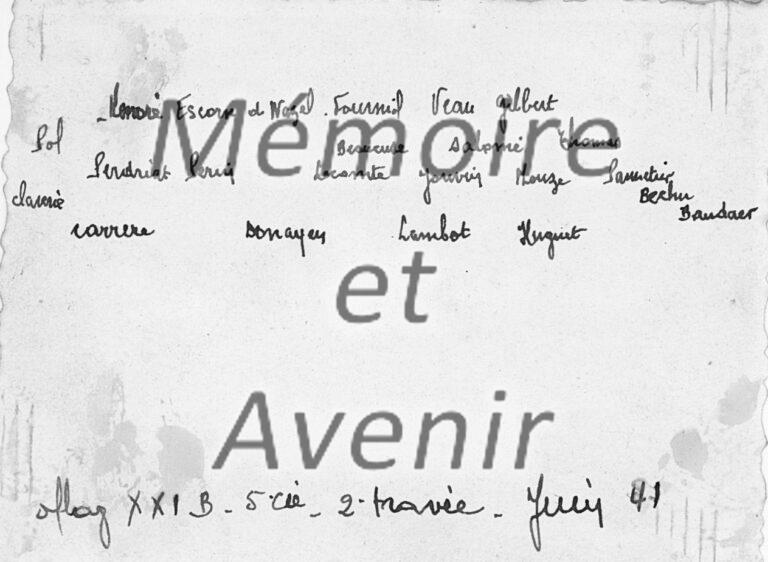 Escorne d Nozel . Fournil Veau Gilbert
Sol Salomé Thomas
Perdriat Perin Lecomte Jouvin Mouze
Claverie Bechu
Baudaer
Carrere Donayen Lambot Huguet
Mémoire
et
Avenir
oflag XXI B - 5e cie - 2e travée - Juin 41